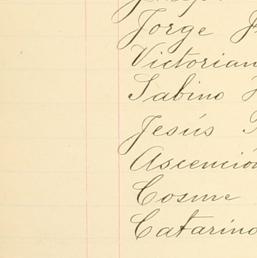 Jorge
Victorian
Sabino
Jesús
Ascenció
Cosme
Catarino